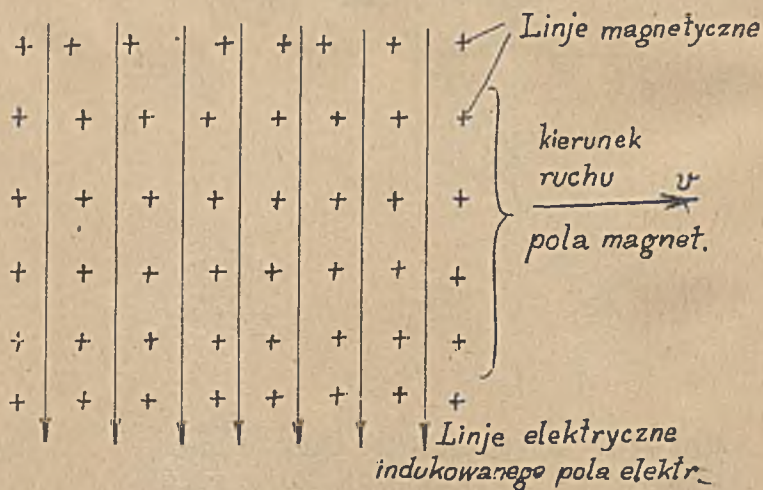 Linje magnetyczne
kierunek
ruchu
v
pola magnet.
Linje elektryczne
indukowanego pola elektr.